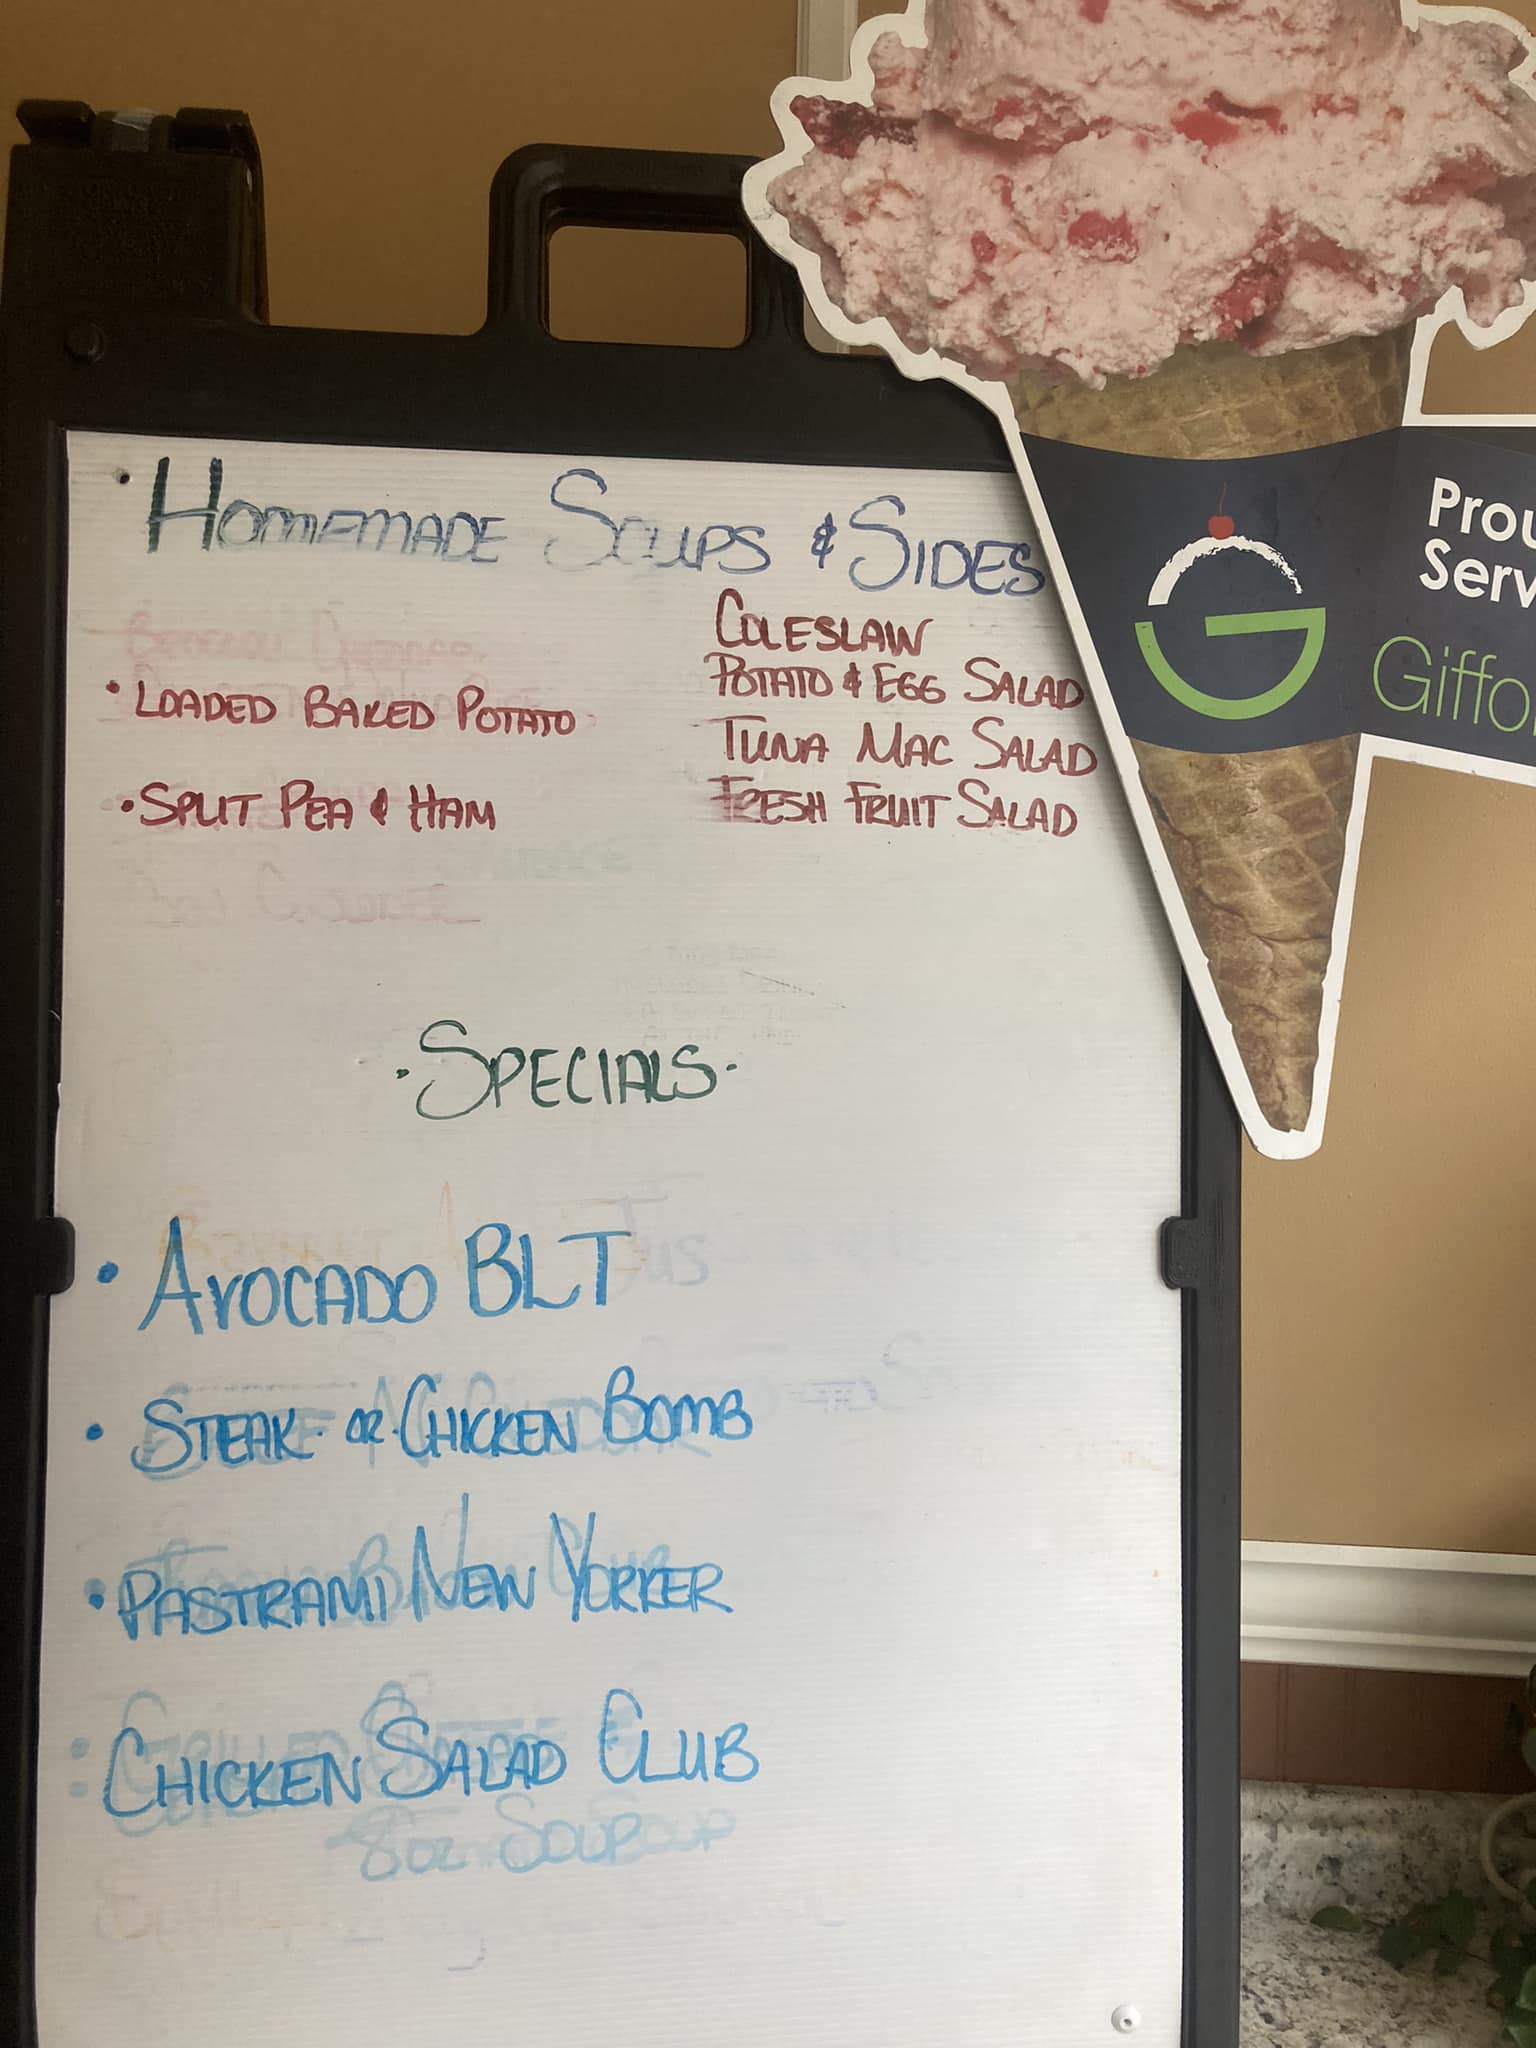 Homemade Soups & Sides
• Loaded Baked Potato
• Split Pea & Ham
Coleslaw
Potato & Egg Salad
Tuna Mac Salad
Fresh Fruit Salad
• Specials •
• Avocado BLT
• Steak or Chicken Bomb
• Pastrami New Yorker
• Chicken Salad Club
8oz Soup
Prou
Serv
Giffo